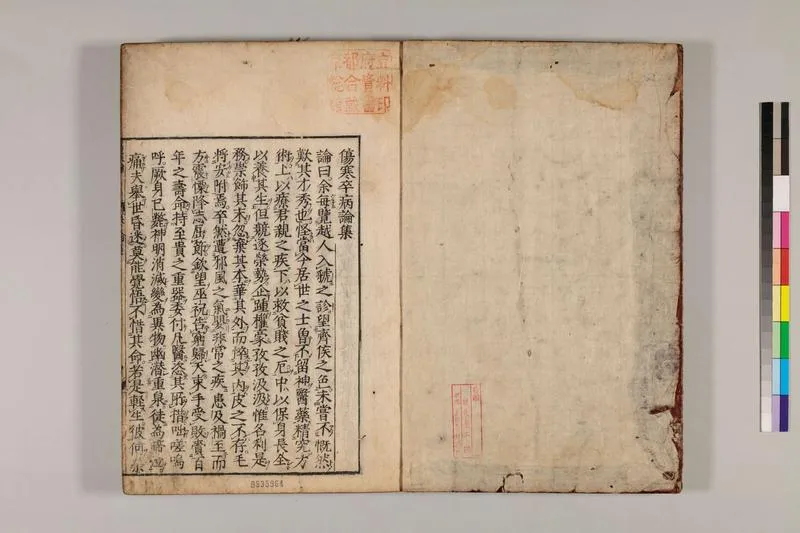 傷寒卒病論集
論曰余每覽越人入虢之診望齊侯之色未嘗不慨然
歎其才秀也怪當今居世之士曽不留神醫藥精究方
術上以療君親之疾下以救貧賤之厄中以保身長全
以養其生但競逐榮勢企踵權豪孜孜汲汲惟名利是
務崇飾其末忽棄其本華其外而悴其内皮之不存毛
將安附焉卒然遭邪風之氣嬰非常之疾患及禍至而
方震慄降志屈節欽望巫祝告窮歸天束手受敗賫百
年之壽命持至貴之重器委付凡醫恣其所措咄嗟嗚
呼厥身已斃神明消滅變為異物幽潜重泉徒為啼
痛夫舉世昏迷莫能覺悟不惜其命若是輕生彼何榮